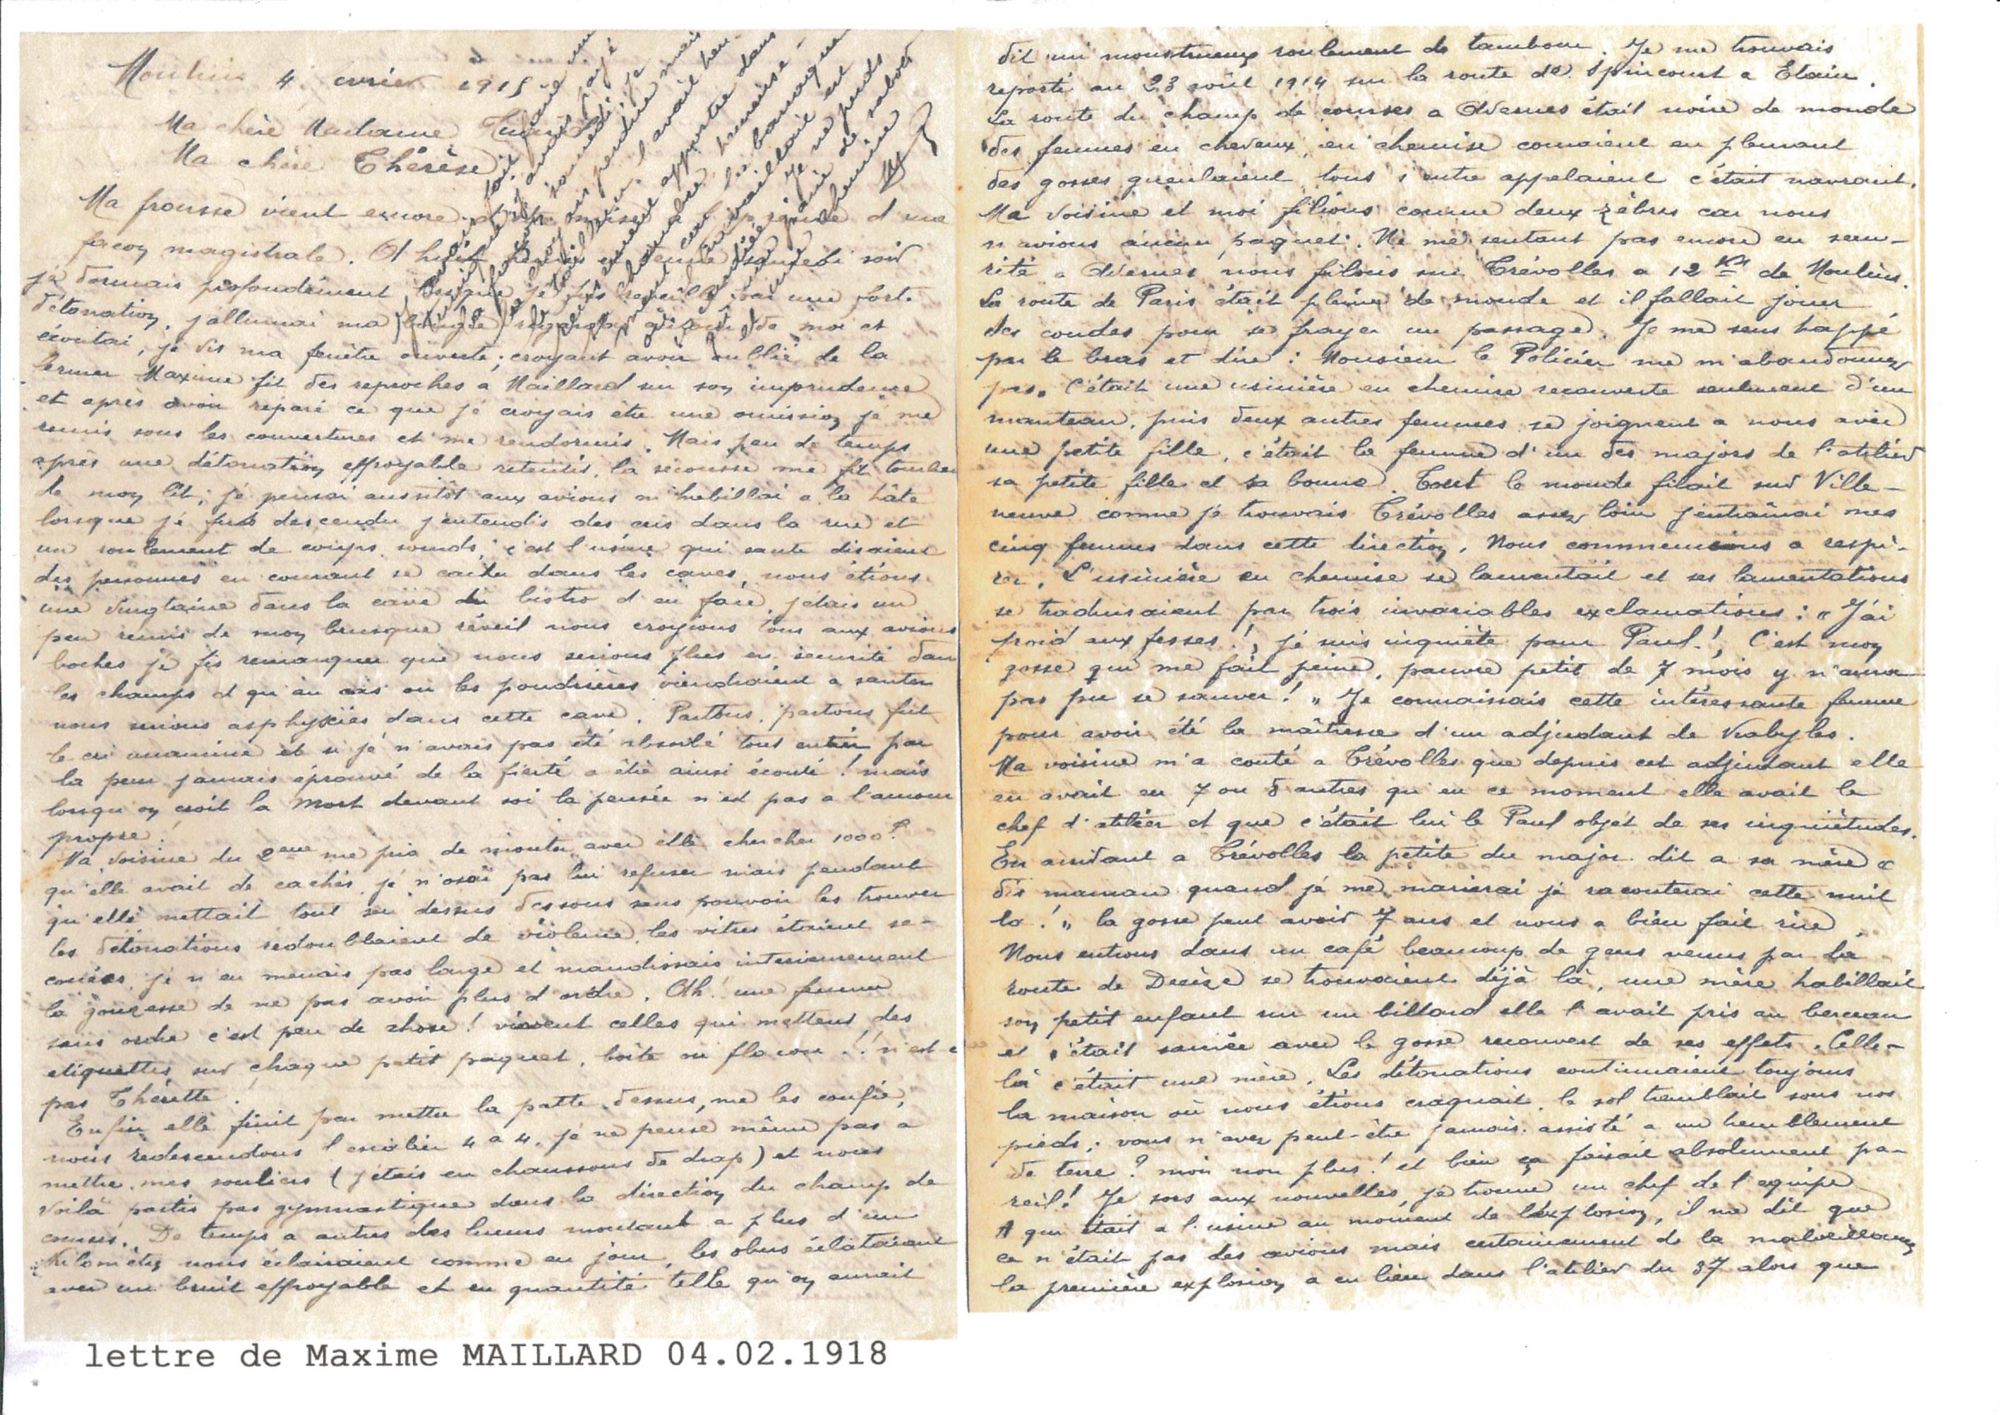 Moulins 4 février 1918
Ma chère Madame
Ma chère Thérèse
Ma frousse vient encore d'être mise à l'épreuve d'une
façon magistrale. A huit heures et demie samedi soir
je dormais profondément lorsque je fus réveillé par une forte
détonation, j'allumai ma bougie regardai autour de moi et
écoutai, je vis ma fenêtre ouverte; croyant avoir oublié de la
fermer Maxime fit des reproches à Maillard sur son imprudence
et après avoir réparé ce que je croyais être une omission je me
remis sous les couvertures et me rendormis. Mais peu de temps
après une détonation effroyable retentit, la secousse me fit tomber
de mon lit; je pensai aussitôt aux avions m'habillai a la hâte
lorsque je fus descendu j'entendis des cris dans la rue et
un roulement de coups sourds, c'est l'usine qui saute disaient
des personnes en courant se cacher dans les caves, nous étions
une vingtaine dans la cave du bistro d'en face, j'étais un
peu remis de mon brusque réveil nous croyions tous aux avions
boches je fis remarquer que nous serions plus en sécurité dans
les champs et qu'au cas où les poudrières viendraient a sauter
nous serions asphyxiés dans cette cave. Partons, partons fut
le cri unanime et si je n'avais pas été absorbé tout entier par
la peur j'aurais éprouvé de la fierté a être ainsi écouté! mais
lorsqu'on croit la Mort devant soi la pensée n'est pas a l'amour
propre!
Ma voisine du 2eme me pria de monter avec elle chercher 1000 f
qu'elle avait de cachés, je n'osai pas lui refuser mais pendant
qu'elle mettait tout sens dessus dessous sans pouvoir les trouver
les détonations redoublaient de violence, les vitres étaient se-
couées, je n'en menais pas large et maudissais intérieurement
la gonzesse de ne pas avoir plus d'ordre. Oh! une femme
sans ordre c'est peu de chose! vivent celles qui mettent des
étiquettes sur chaque petit paquet, boîte ou flacon!! n'est ce
pas Thérette!
Enfin elle finit par mettre la patte dessus, me les confie,
nous redescendons l'escalier 4 a 4. je ne pense même pas a
mettre mes souliers (j'étais en chaussons de drap) et nous
voilà partis pas gymnastique dans la direction du champ de
courses. De temps a autres des lueurs montant a plus d'un
Kilomètre nous éclairaient comme en jour, les obus éclataient
avec un bruit effroyable et en quantité telle qu'on aurait
dit un monstrueux roulement de tambour. Je me trouvais
reporté au 23 août 1914 sur la route de Spincourt a Etain.
La route du champ de courses a Avermes était noire de monde
des femmes en cheveux, en chemise couraient en pleurant
des gosses gueulaient, tous s'entre appelaient c'était navrant.
Ma voisine et moi filions comme deux zèbres car nous
n'avions aucun paquet. Ne me sentant pas encore en sécu-
rité a Avermes nous filons sur Trévolles a 12 Kms de Moulins.
La route de Paris était pleine de monde et il fallait jouer
des coudes pour se frayer un passage. Je me sens happé
par le bras et dire: Monsieur le Policier ne m'abandonnez
pas. C'était une usinière en chemise recouverte seulement d'un
manteau, puis deux autres femmes se joignent a nous avec
une petite fille, c'était la femme d'un des majors de l'atelier
sa petite fille et sa bonne. Tout le monde filait sur Ville-
neuve comme je trouvais Trévolles assez loin j'entraînai mes
cinq femmes dans cette direction. Nous commencions a respi-
rer. L'usinière en chemise se lamentait et ses lamentations
se traduisaient par trois invariables exclamations: "J'ai
froid aux fesses!, je suis inquiète pour Paul!, C'est mon
gosse qui me fait peine, pauvre petit de 7 mois y n'aura
pas pu se sauver!" Je connaissais cette intéressante femme
pour avoir été la maîtresse d'un adjudant de Kabyles.
Ma voisine m'a conté a Trévolles que depuis cet adjudant elle
en avait eu 7 ou 8 autres qu'en ce moment elle avait le
chef d'atelier et que c'était lui le Paul objet de ses inquiétudes.
En arrivant a Trévolles la petite du major dit a sa mère "
dis maman quand je me marierai je raconterai cette nuit
là!" la gosse peut avoir 7 ans et nous a bien fait rire
Nous entrons dans un café beaucoup de gens venus par la
route de Decize se trouvaient déjà là, une mère habillait
son petit enfant sur un billard elle l'avait pris au berceau
et s'était sauvée avec le gosse recouvert de ses effets. Celle-
là c'était une mère. Les détonations continuaient toujours
la maison où nous étions craquait, le sol tremblait sous nos
pieds; vous n'avez peut-être jamais assisté a un tremblement
de terre? moi non plus! et bien ça faisait absolument pa-
reil! Je sors aux nouvelles, je trouve un chef de l'équipe
A qui était a l'usine au moment de l'explosion, il me dit que
ce n'était pas des avions mais certainement de la malveillance
la première explosion a eu lieu dans l'atelier du 37 alors que
lettre de Maxime MAILLARD 04.02.1918